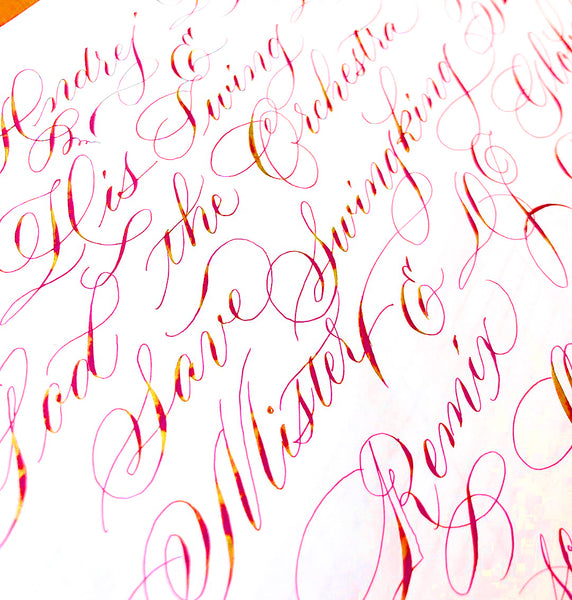 Andrej &
His Swing Orchestra
God Save the Swingking
Mister &
Remix